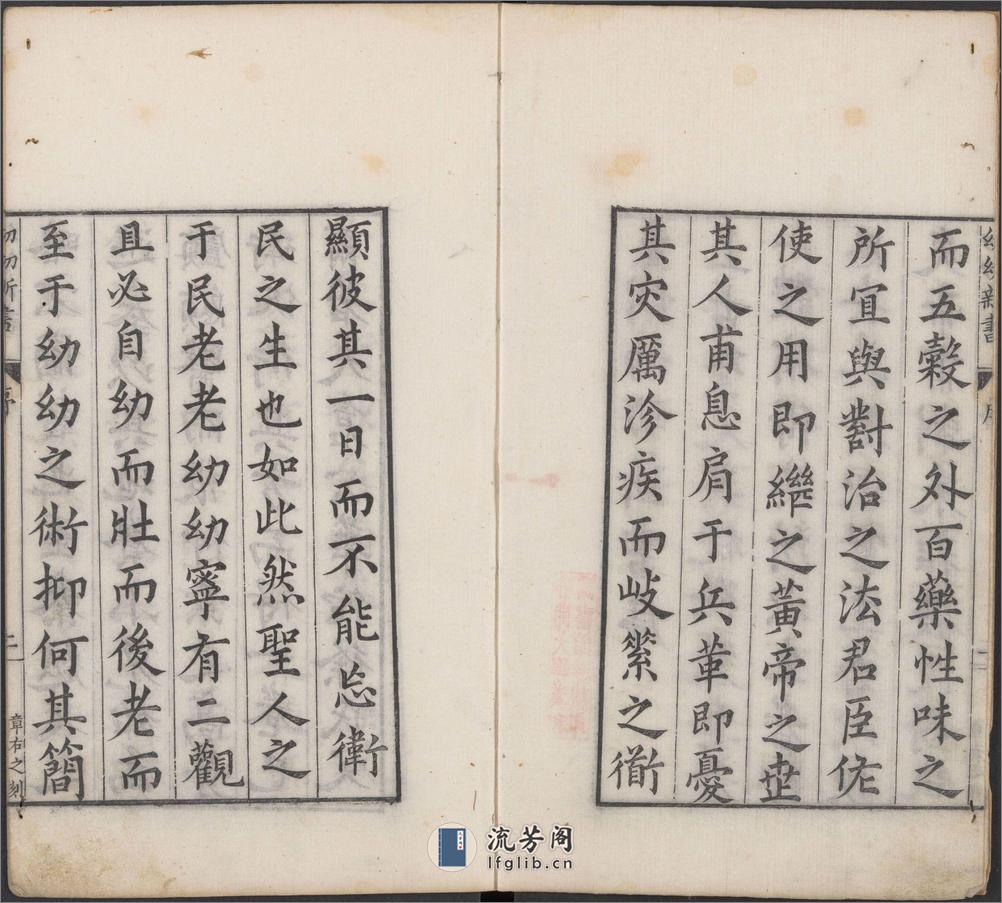 而五穀之外百藥性味之
所宜與對治之法君臣佐
使之用即繼之黃帝之世
其人甫息肩于兵革即憂
其灾厲沴疾而岐縈之術
顯彼其一日而不能忘衛
民之生也如此然聖人之
于民老老幼幼寧有二觀
且必自幼而壯而後老而
至于幼幼之術抑何其簡
幼幼新書
序
二
章右之刻
流芳阁
lfglib.cn